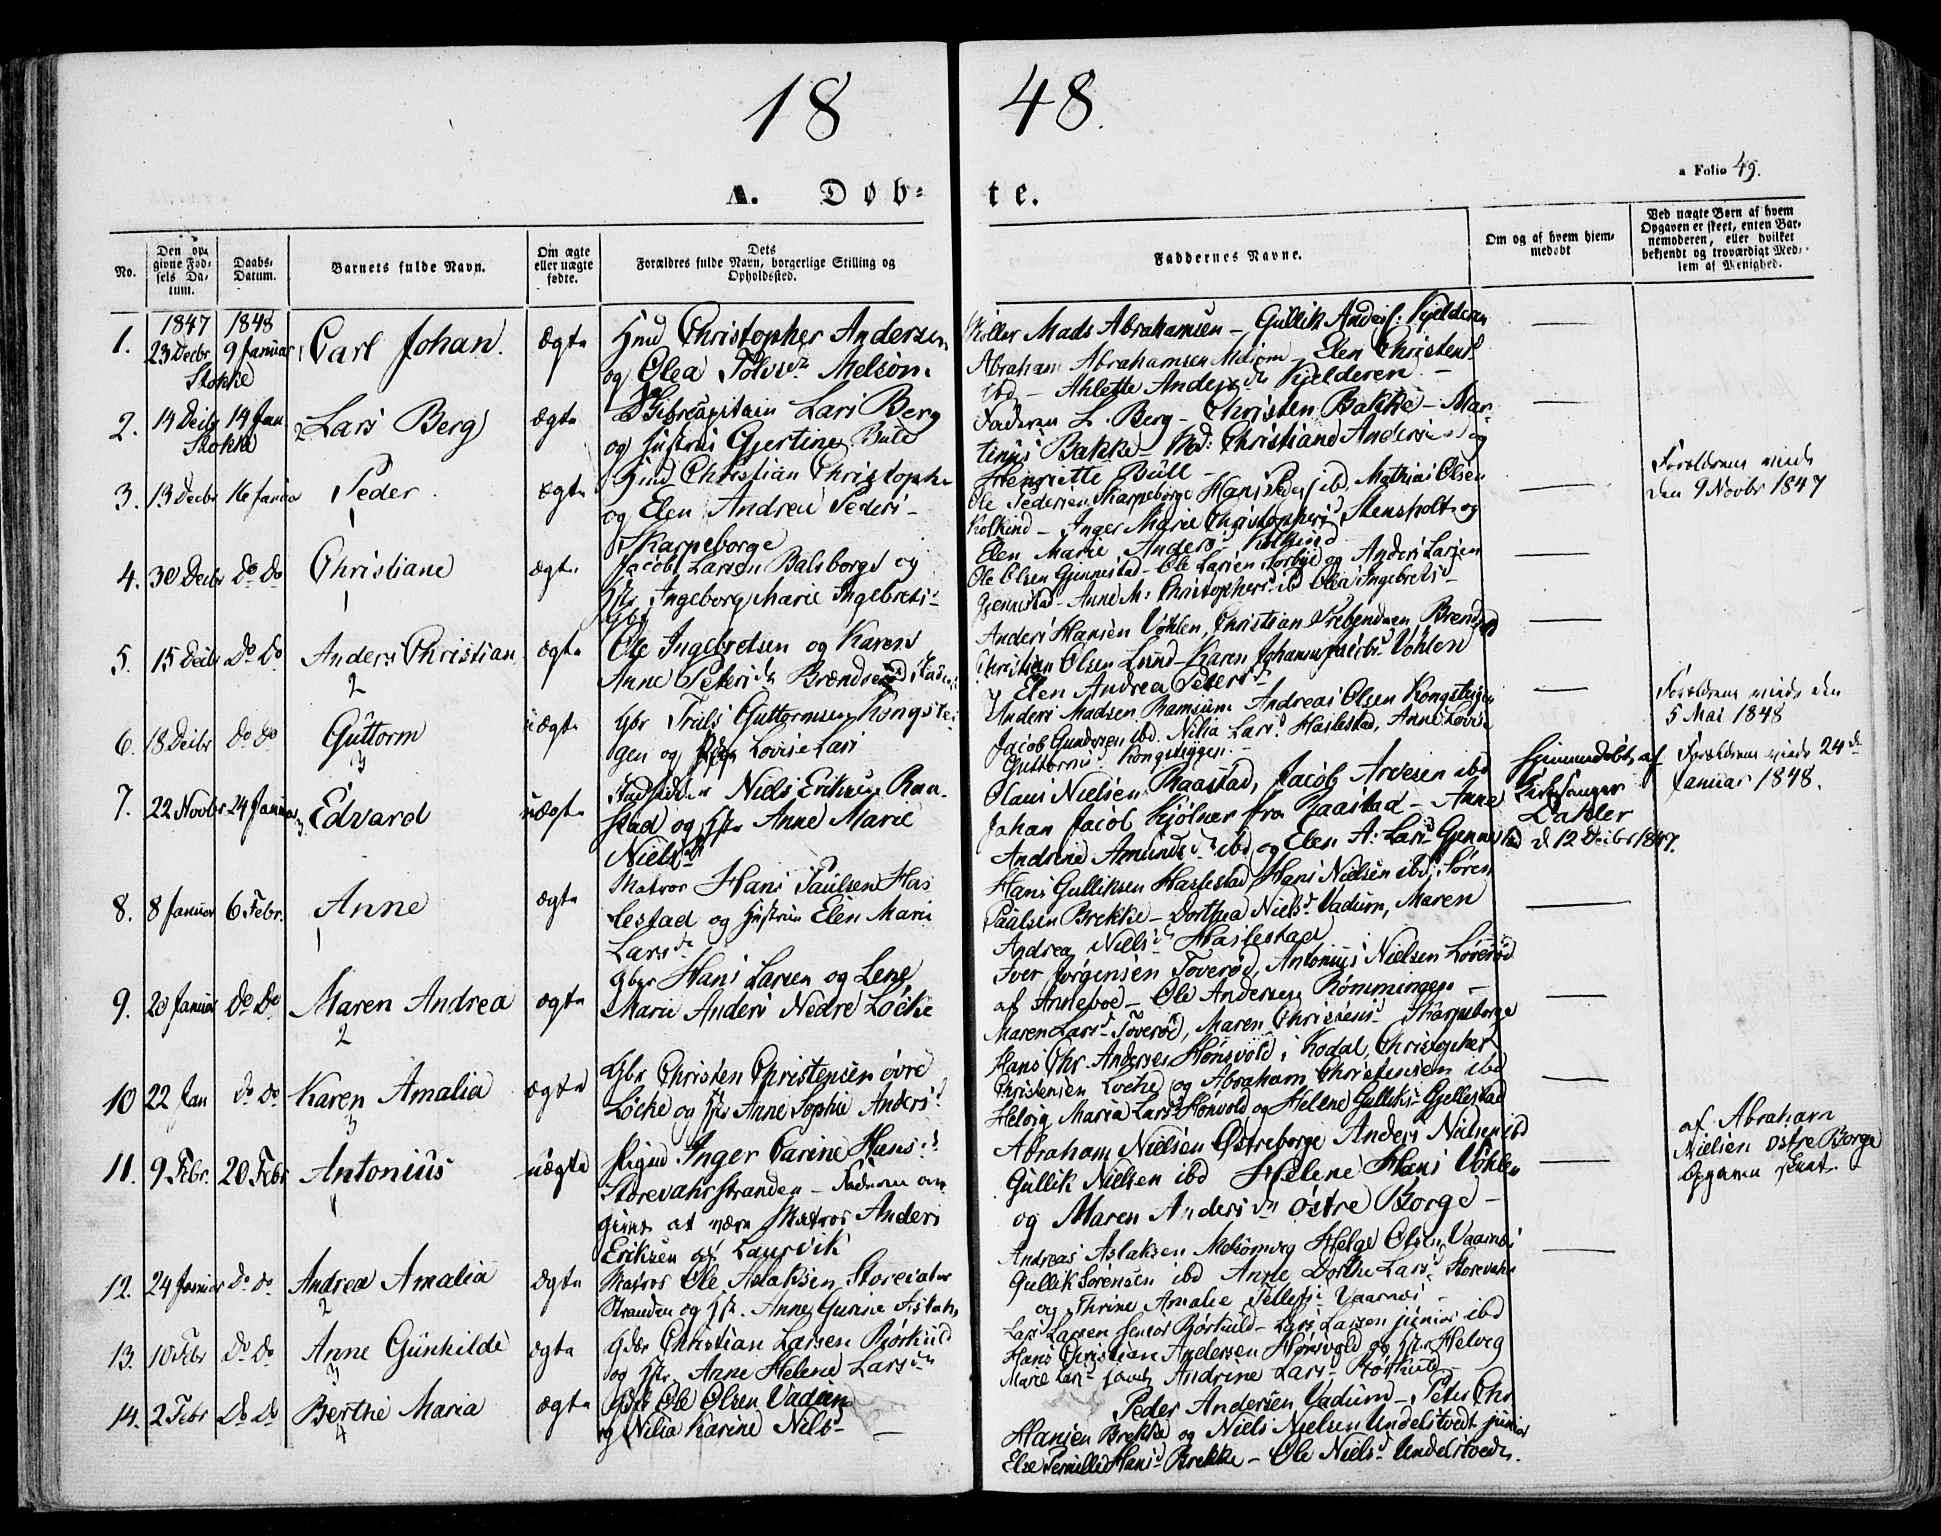 18 48.
a Folio 45.
A. Døb= te.
No.
Den opgivne Fødsels Datum.
Daabs-Datum.
Barnets fulde Navn.
Om ægte eller uægte fødte.
Dets Forældres fulde Navn, borgerlige Stilling og Opholdssted.
Faddernes Navne.
Om og af hvem hjemmedøbt
Ved uægte Børn af hvem Opgaven er skeet, enten Barnemoderen, eller hvilket bekjendt og troværdigt Medlem af Menighed.
1847 1848
1. 23 Decbr 9 Januar Carl Johan. ægte
Stokke
Christopher Andersen
og Olea Melsom.
Mads Abrahamsen – Gullik Anders:
Abraham Abrahamsen Melsom – Elen
Ahlette Kjelderen –
2. 14 Decbr 14 Jan Lars Berg ægte
Stokke
Lars Berg
og Hustrue Gjertine Bull
Faderen L. Berg – Christen Bakke – Mar
tinus Bakke – Md: Christiane Anders og
Henriette Bull –
3. 13 Decbr 16 Janua Peder ægte
1
Christian Christophe
og Elen Andrea Peders –
Skarpeborge
Ole Pedersen Skarpeborge Hans Peders ibd, Mathias Olsen
– Inger Marie Christophers Stensholt og
Elen Marie Anders
Forældrene viede
den 9 Novbr 1847
4. 30 Decbr Do Do Christiane ægte
1
Jacob Larsen Balsborge og
Hstr Ingeborg Marie Ingebrets –
Ole Olsen Gjennestad – Ole Larsen og Anders Larsen
Gjennestad – Anne M: Christophers ib Olea Ingebrets
5. 15 Decbr Do Do Anders Christian ægte
2
Gbr
Ole Ingebretsen og Karen
Anne Peters
Anders Hansen Vøhlen, Christian
Christian Olsen Lund – Karen Vøhlen
og Elen Andrea Peters
6. 18 Decbr do do Guttorm uægte
3
Gbr Truls Guttormsen Kongste
gen og Lovise Lars
Anders Madsen Ramsum Andreas Olsen
Jacob Gundersen ibd. Nilia Lars Haslestad, Anne Lovise
Guttorms
Forældrene viede den
5 Mai 1848
7. 22 Novbr 24 Januar Edvard uægte
3
Niels Eriksen Raa
stad og Anne Marie
Niels
Olaus Nielsen Raastad, Jacob Arvesen ibd
Johan Jacob Kjølner fra Raastad – Anne
Andrine Amunds ibd og Elen A: Lars Gjennestad
Hjemmedøbt af
Kirkesanger
Dahler
d 12 Decbr 1847.
Forældrene viede 24 de
Januar 1848.
8. 8 Januar 6 Febr. Anne ægte
1
Matros Hans Paulsen Has
lestad og Hustrue Elen Marie
Lars
Hans Gulliksen Haslestad Hans Nielsen ibd, Søren
Paulsen Brekke – Dorthea Niels Vadum, Maren
Andrea Niels Haslestad
9. 20 Januar Do Do Maren Andrea ægte
2
Gbr Hans Larsen og Lene
Marie Anders Nedre Løcke
Iver Jørgensen Toverød, Antonius Nielsen
af Anneboe – Ole Andersen Rømmingen –
Maren Lars Toverød, Maren Christens Skarpeborge
10 22 Jan do do Karen Amalia ægte
3
Gbr Christen Christensen øvre
Løcke og Hstr Anne Sophie Anders
Hans Chr. Andersen Hønsvold i Kodal, Christopher
Christensen Løcke og Abraham Christensen ibd
Helvig Maria Lars Hønvold og Helene Gulliks Gjellestad
11. 9 Febr. 20 Febr Antonius uægte
1
Pigen Inger Carine Hans
Storevahrstranden – Faderen an
gives at være Matros Anders
Eriksen af Laurvik
Abraham Nielsen Østreborge Anders Nielsen ibd
Gullik Nielsen ibd Helene Hans Vøhlen
og Maren Anders østre Borge –
af Abraham
Nielsen østre Borge
Opgaven skeet –
12. 24 Januar do do Andrea Amalia ægte
2
Matros Ole Aslaksen Storevahr
Stranden og Hstr. Anne Gurine Aslaks
Andreas Aslaksen Melsomvig Helge Olsen Vaarnes
Gullik Sørensen ibd Anne Dorthe Lars Storevahr
og Thrine Amalie Tellefs Vaarnes –
13. 10 Febr Do Do Anne Gunhilde ægte
3
Gbr Christian Larsen Bjørkuld
og Hstr. Anne Helene Lars
Lars Larsen senior Bjørkuld – Lars Larsen junior ibd
Hans Christian Andersen Hønsvold og Hstr Helvig
Marie Lars Andrine Lars –
14. 2 Febr Do Do Berthe Maria ægte
4
Gbr Ole Olsen Vadum
og Nilia Karine Niels –
Peder Andersen Vadum – Peter Chr
Hansen Brekke og Niels Nielsen Undelstvedt junior
Else Pernille Hans Brekke – Ole Niels Undelstvedt.